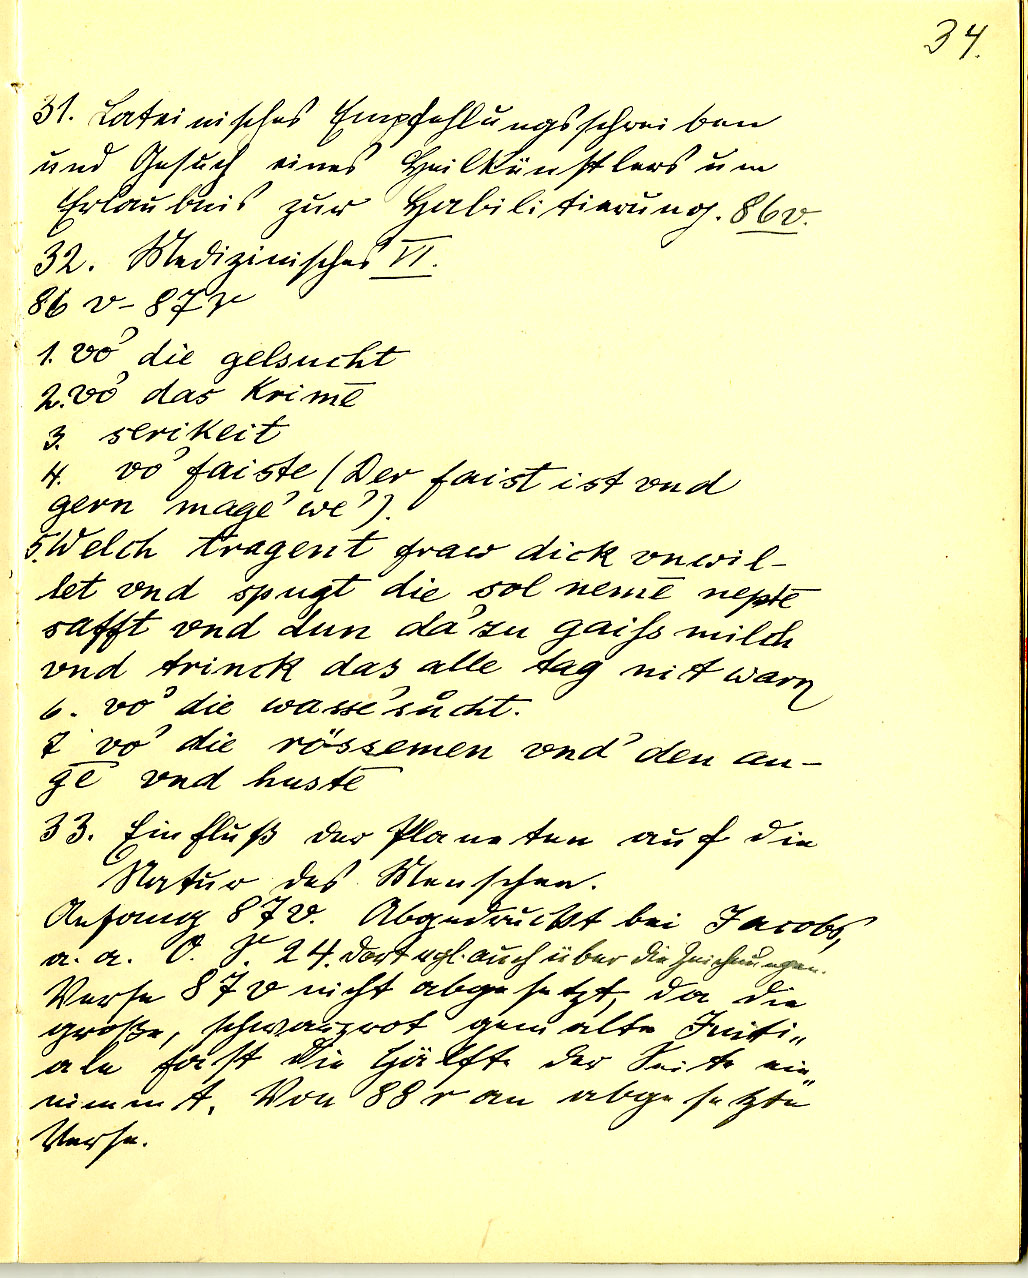 34.
31. Lateinisches Empfehlungsschreiben
und Gesuch eines Heilkünstlers um
Erlaubnis zur Habilitierung. 86v.
32. Medizinisches VI.
86 v - 87 r
1. vo' die gelsucht
2. vo' das Krimē
3. serikeit
4. vo' faiste (Der faist ist vnd
gern mage' we').
5. Welch tragent fraw dick vnwil-
let vnd spugt die sol nemē neptē
safft vnd dun da'zu gaiss milch
vnd trinck das alle tag nit warm
6. vo' die wasse'sůcht.
7 vo' die rössemen vnd' den an-
gē vnd hustē
33. Einfluß der Planeten auf die
Natur des Menschen.
Anfang 87v. Abgedruckt bei Jacobs,
a. a. O. S. 24. dort vgl. auch über die Zeichnungen.
Verse 87v nicht abgesetzt, da die
große, schwarzrot gemalte Initi„
ale fast die Hälfte der Seite ein„
nimmt. Von 88r an abgesetzte
Verse.